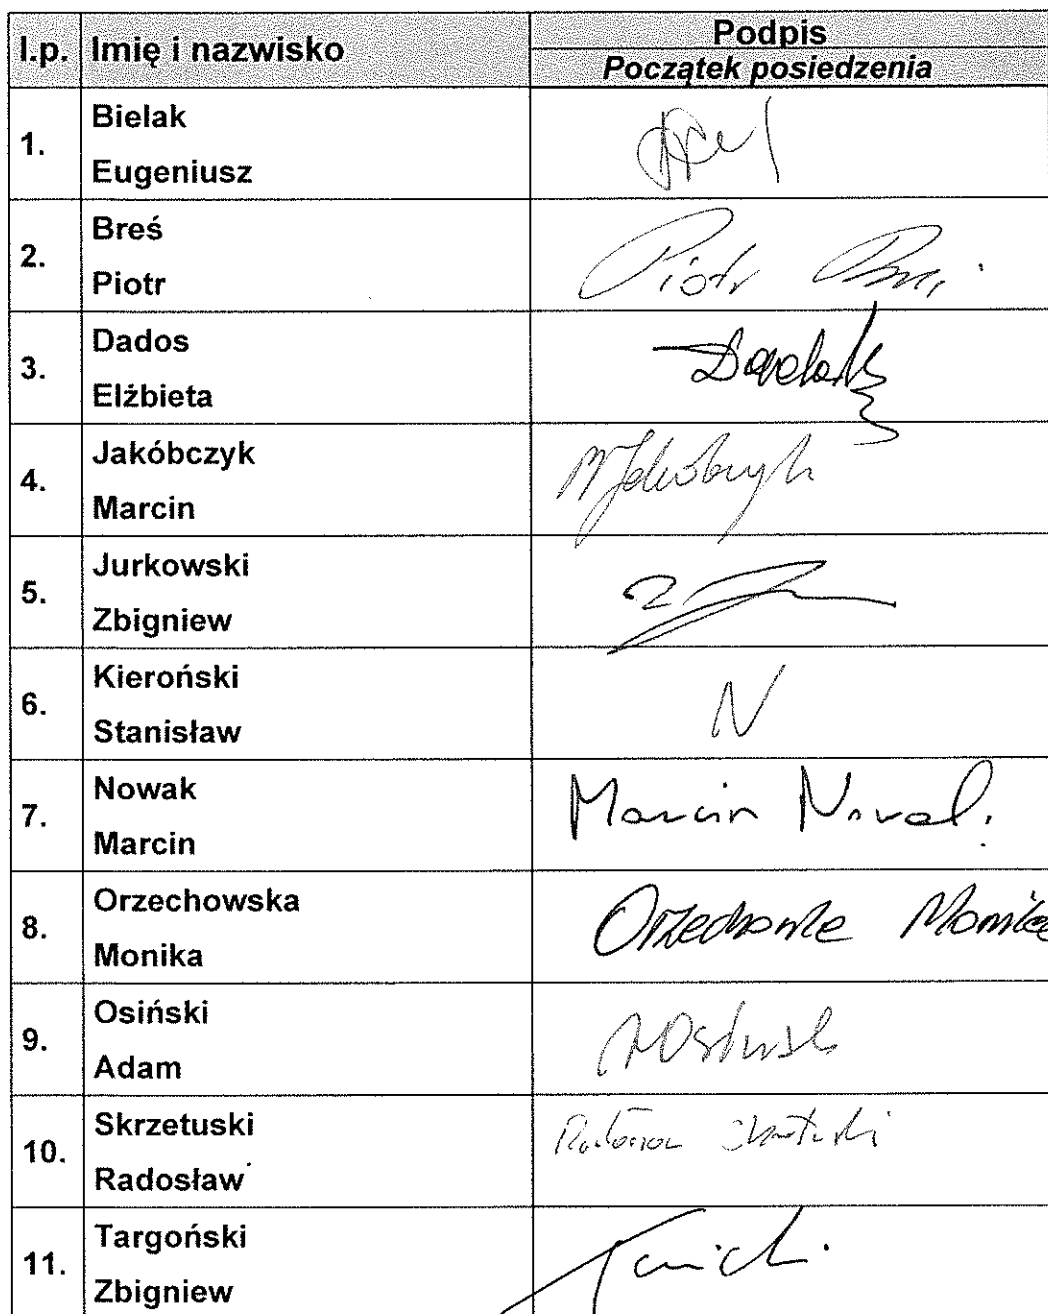 l.p. Imię i nazwisko Podpis
Początek posiedzenia
1. Bielak
Eugeniusz
2. Breś
Piotr
Piotr
3. Dados
Elżbieta
4. Jakóbczyk
Marcin
M Jakóbczyk
5. Jurkowski
Zbigniew
6. Kieroński
Stanisław
N
7. Nowak
Marcin
Marcin Nowak
8. Orzechowska
Monika
Orzechowska Monika
9. Osiński
Adam
10. Skrzetuski
Radosław
11. Targoński
Zbigniew